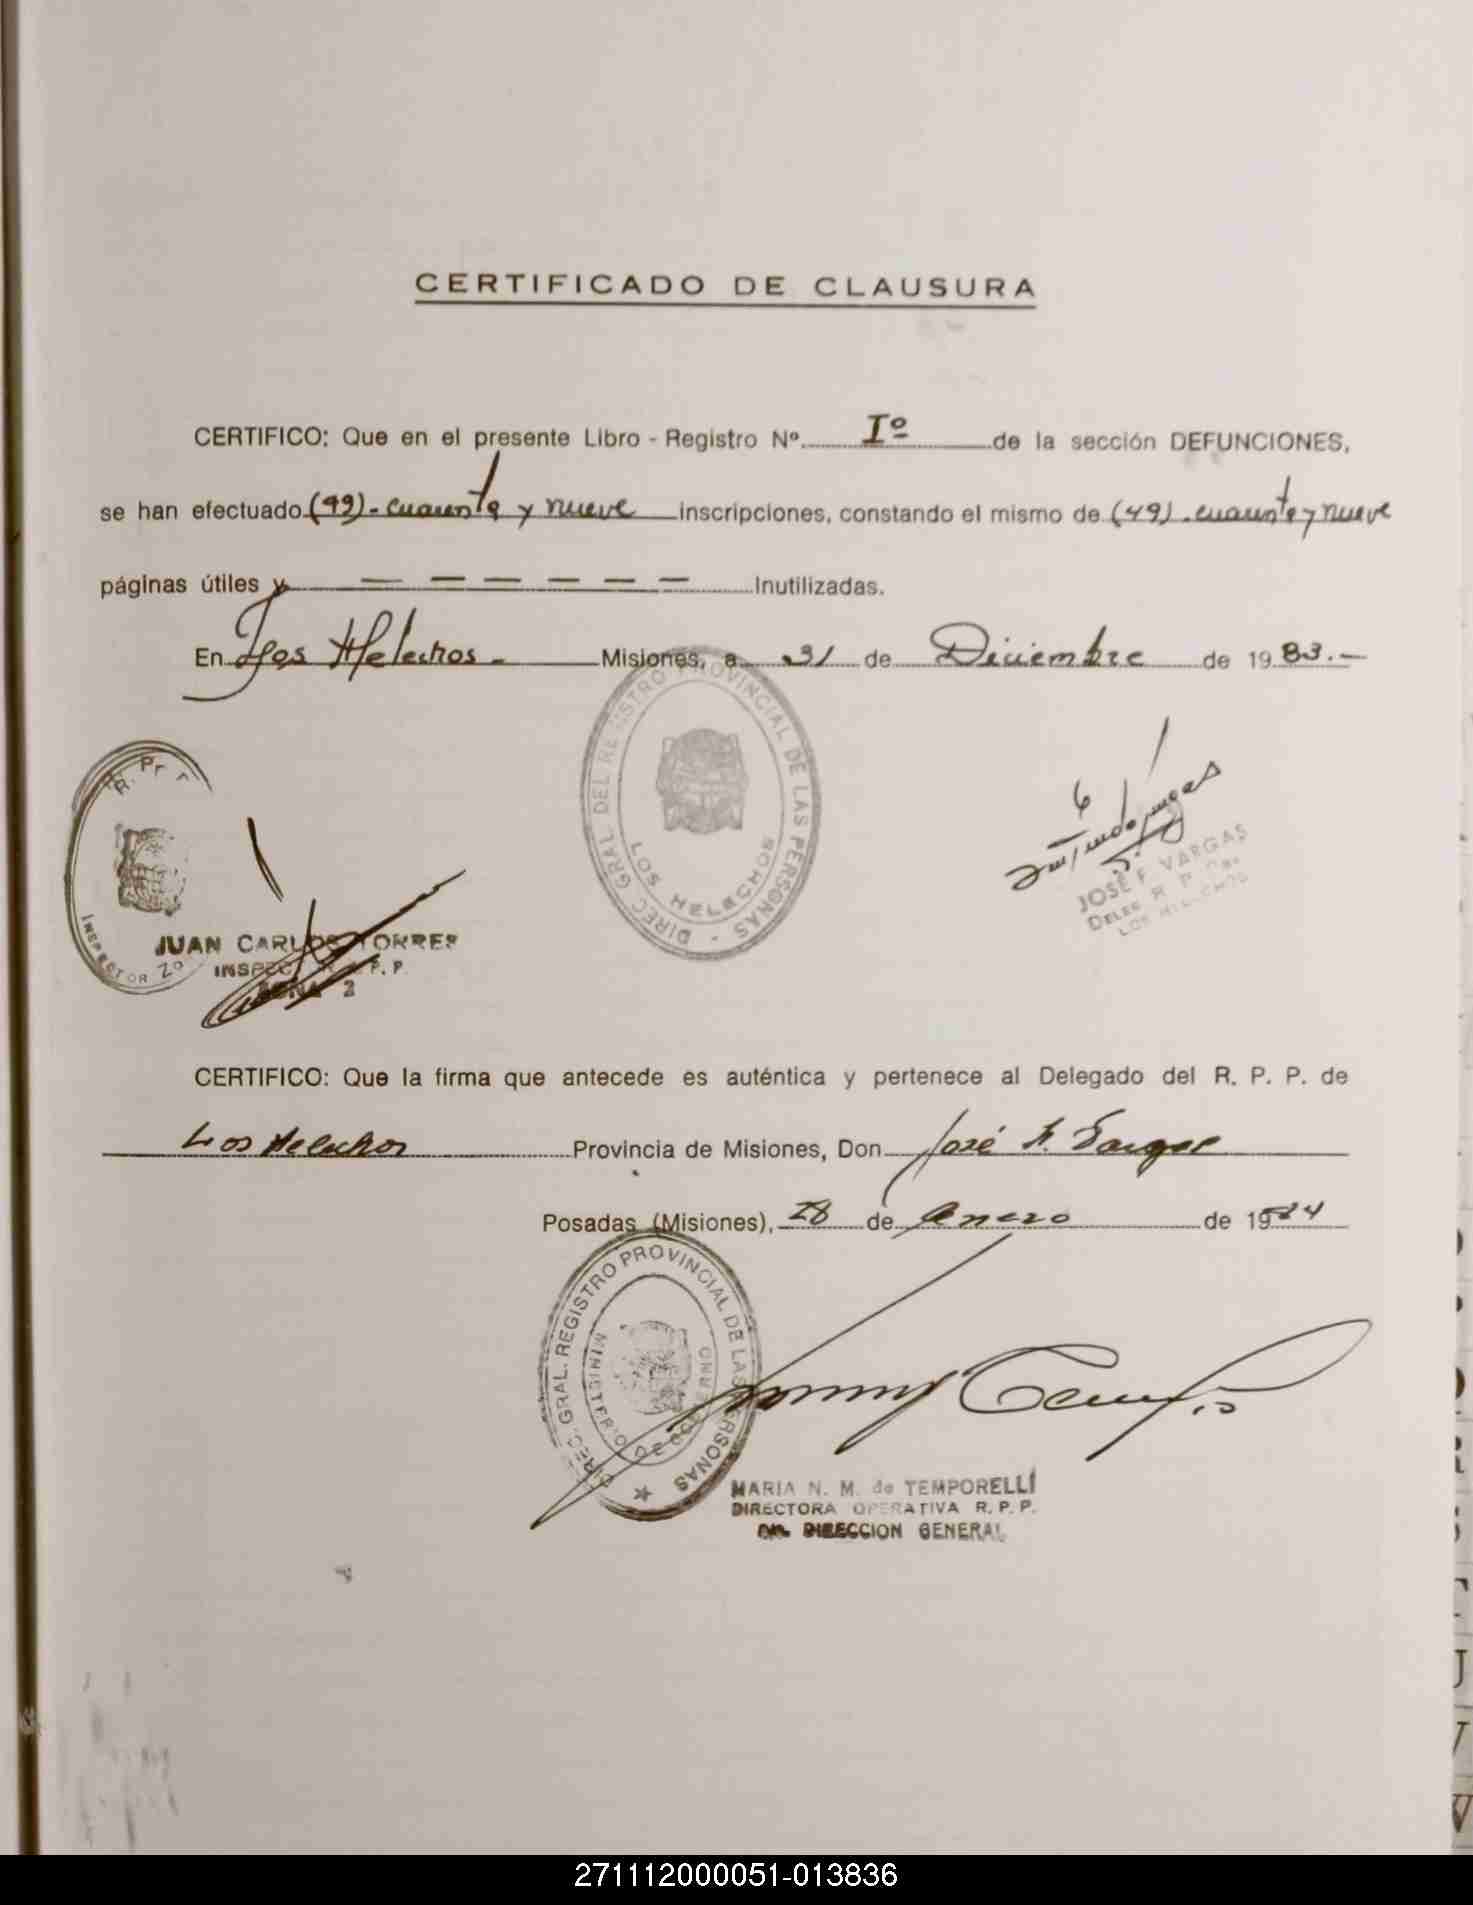 CERTIFICADO DE CLAUSURA
CERTIFICO: Que en el presente Libro - Registro Nº Iº de la sección DEFUNCIONES,
se han efectuado (49) - cuarenta y nueve inscripciones, constando el mismo de (49) - cuarenta y nueve
páginas útiles y — — — — — — Inutilizadas.
En Los Helechos - Misiones, a 31 de Diciembre de 1983.-
DIREC. GRAL DEL REGISTRO PROVINCIAL DE LAS PERSONAS -
LOS HELECHOS
INSPECTOR
JUAN CARLOS TORRES
INSPEC. R. P. P.
ZONA 2
JOSÉ F. VARGAS
DELEG R. P.
LOS HELECHOS
CERTIFICO: Que la firma que antecede es auténtica y pertenece al Delegado del R. P. P. de
Los Helechos Provincia de Misiones, Don José F. Vargas
Posadas (Misiones), 28 de Enero de 1984
DIREC. GRAL. REGISTRO PROVINCIAL DE LAS PERSONAS
MINISTERIO DE GOBIERNO
MARIA N. M. de TEMPORELLI
DIRECTORA OPERATIVA R. P. P.
DIRECCION GENERAL
271112000051-013836